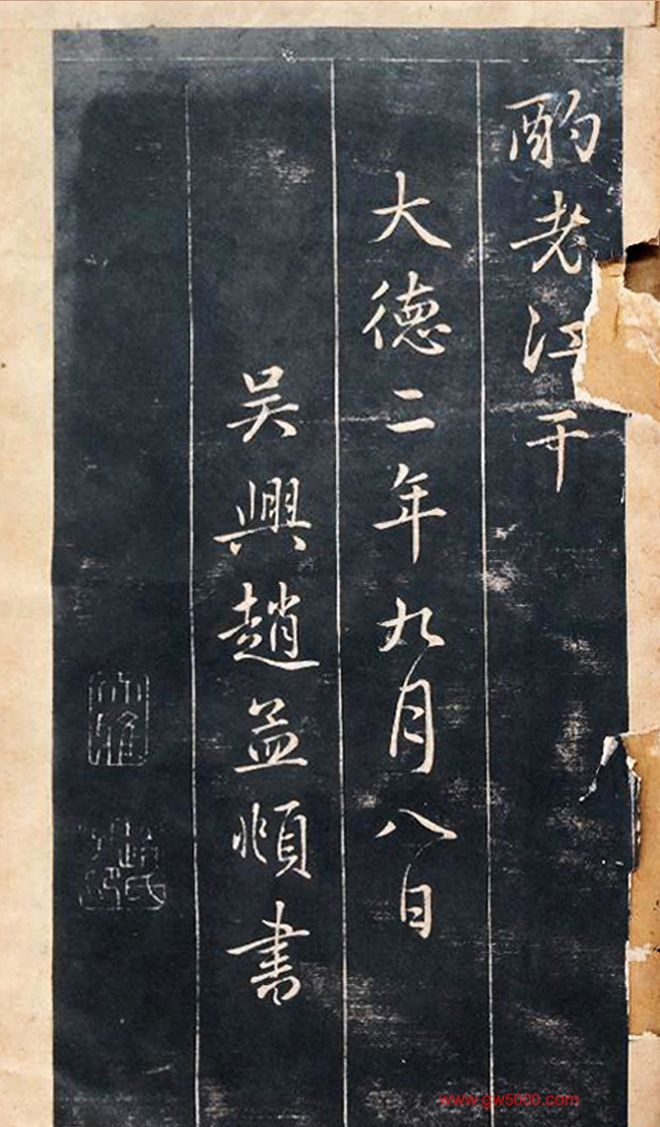 酌老江干
大德二年九月八日
吴興趙孟頫書
大雅
趙氏子昂
www.gw5000.com